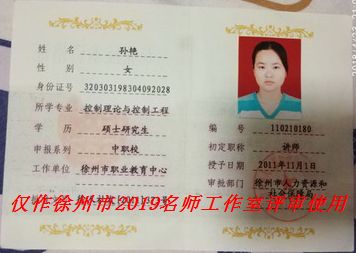 姓名 孙艳
性别 女
身份证号 320303198304092028
所学专业 控制理论与控制工程
学历 硕士研究生
申报系列 中职校
工作单位 徐州市职业教育中心
编号 110210180
初定职称 讲师
授予日期 2011年11月1日
审批部门 徐州市人力资源和
社会保障局
仅作徐州市2019名师工作室评审使用